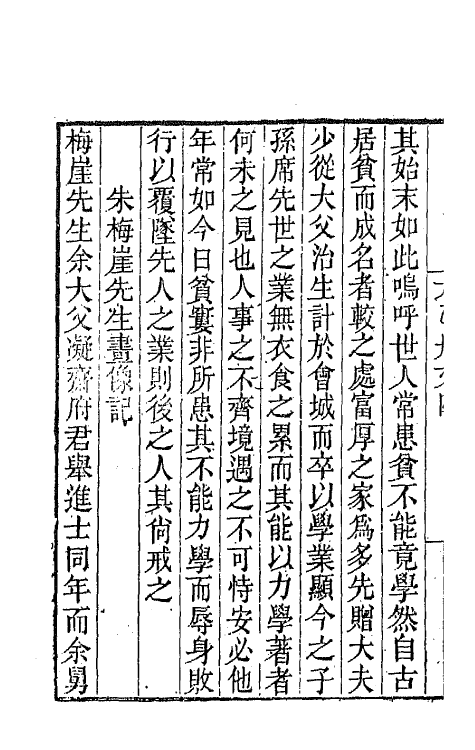 其始末如此嗚呼世人常患貧不能竟學然自古
居貧而成名者較之處富厚之家爲多先贈大夫
少從大父治生計於會城而卒以學業顯今之子
孫席先世之業無衣食之累而其能以力學著者
何未之見也人事之不齊境遇之不可恃安必他
年常如今日貧窶非所患其不能力學而辱身敗
行以覆墜先人之業則後之人其尙戒之
朱梅崖先生畫像記
梅崖先生余大父凝齋府君舉進士同年而余舅